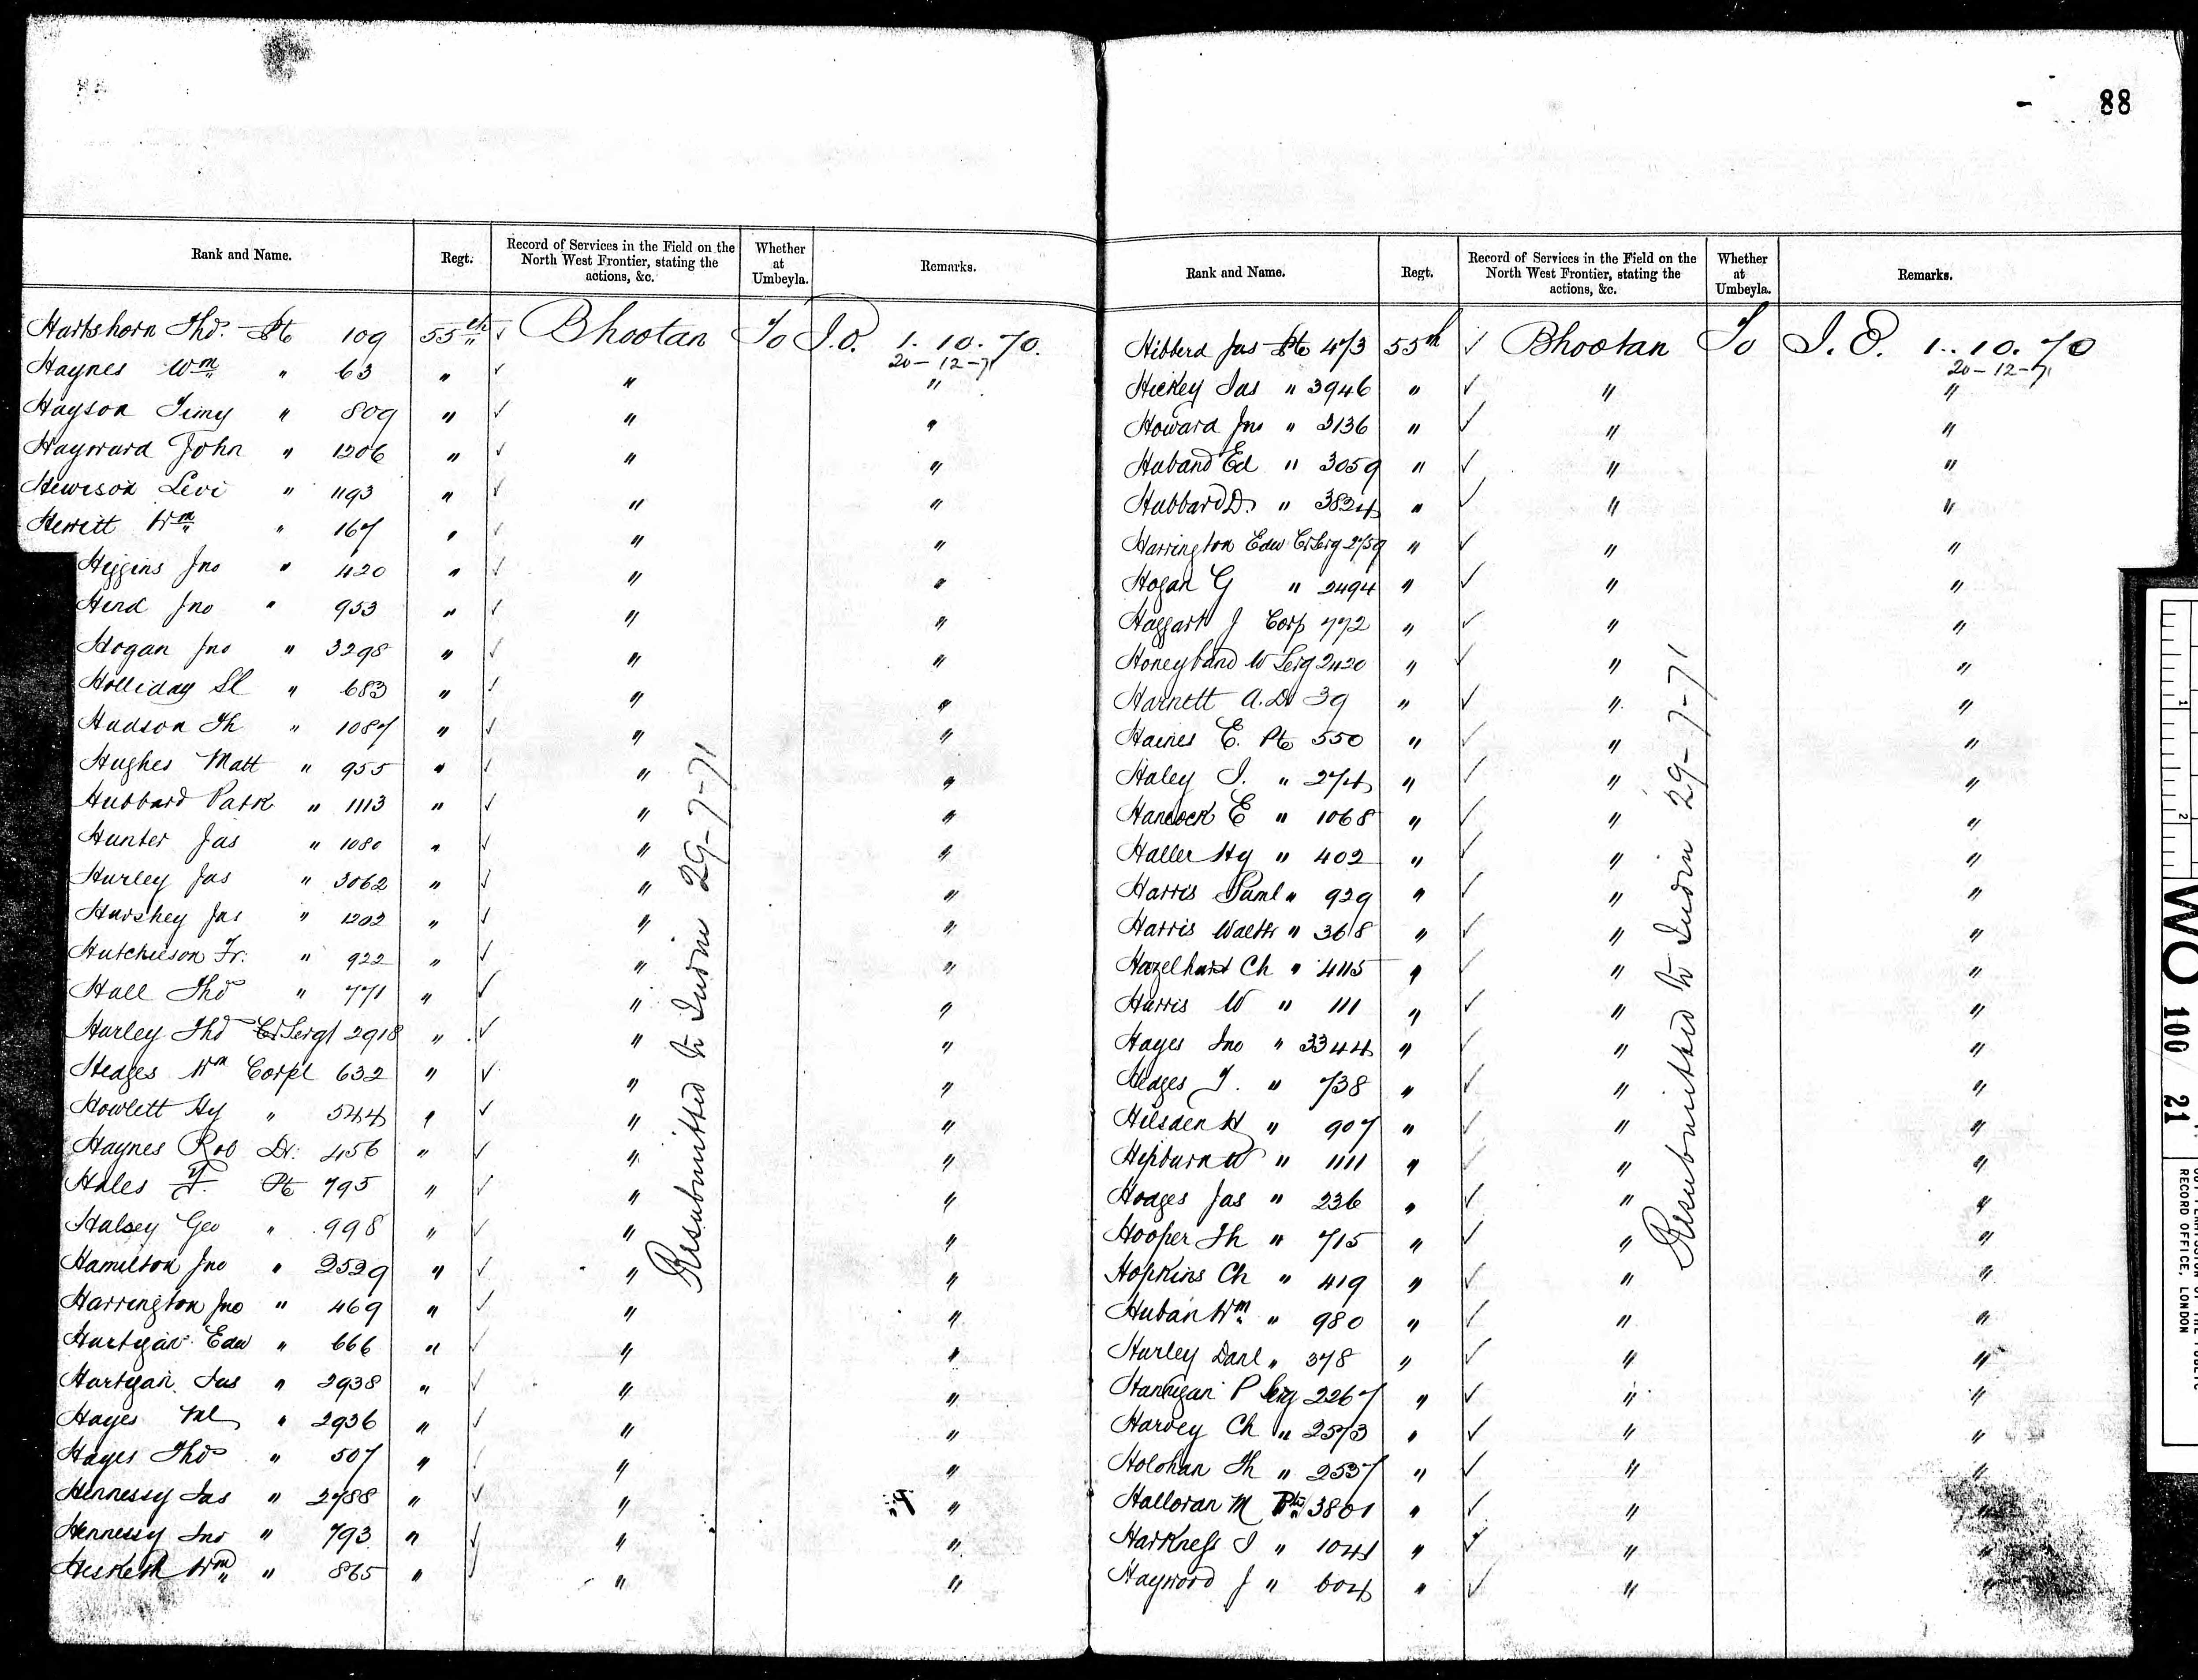 88
Rank and Name. Regt. Record of Services in the Field on the North West Frontier, stating the actions, &c. Whether at Umbeyla. Remarks.
Hartshorn Thos Pte 109 55th ✓ Bhootan To I.O. 1. 10. 70.
20-12-71
Haynes Wm " 63 " ✓ " "
Hayson Timy " 809 " ✓ " "
Hayward John " 1206 " ✓ " "
Hewison Levi " 1193 " ✓ " "
Hewitt Wm " 167 " ✓ " "
Higgins Jno " 420 " ✓ " "
Hind Jno " 953 " ✓ " "
Hogan Jno " 3298 " ✓ " "
Holliday Sl " 683 " ✓ " "
Hudson Th " 1087 " ✓ " "
Hughes Matt " 955 " ✓ " "
Hubbard Patk " 1113 " ✓ " "
Hunter Jas " 1080 " ✓ " "
Hurley Jas " 3062 " ✓ " "
Hurshey Jas " 1202 " ✓ " "
Hutchieson Fr. " 922 " ✓ " "
Hall Thos " 771 " ✓ " "
Hurley Thos Cr Sergt 2918 " ✓ " "
Hedges Wm Corpl 632 " ✓ " "
Howlett Hy " 544 " ✓ " "
Haynes Rob Dr: 456 " ✓ " "
Hales Pte 795 " ✓ " "
Halsey Geo " 998 " ✓ " "
Hamilton Jno " 2529 " ✓ " "
Harrington Jno " 469 " ✓ " "
Hartigan Edw " 666 " ✓ " "
Hartigan Jas " 2938 " ✓ " "
Hayes Ml " 2936 " ✓ " "
Hayes Thos " 507 " ✓ " "
Hennessy Jas " 2788 " ✓ " "
Hennessy Jno " 793 " ✓ " "
Hesketh Wm " 865 " ✓ " "
Resubmitted to India 29-7-71
Rank and Name. Regt. Record of Services in the Field on the North West Frontier, stating the actions, &c. Whether at Umbeyla. Remarks.
Hibberd Jas Pte 473 55th ✓ Bhootan To I.O. 1. 10. 70
20-12-71
Hickey Jas " 3946 " ✓ " "
Howard Jno " 3136 " ✓ " "
Huband Ed " 3059 " ✓ " "
Hubbard D. " 3824 " ✓ " "
Harrington Edw Cr Serg 2759 " ✓ " "
Hogan G " 2494 " ✓ " "
Haggart J Corp 772 " ✓ " "
Honeyband W Serg 2420 " ✓ " "
Harnett A. Dr 39 " ✓ " "
Haines E. Pte 550 " ✓ " "
Haley J. " 274 " ✓ " "
Hancock E " 1068 " ✓ " "
Haller Hy " 402 " ✓ " "
Harris Saml " 929 " ✓ " "
Harris Waltr " 368 " ✓ " "
Hazelhurst Ch " 4115 " ✓ " "
Harris W " 111 " ✓ " "
Hayes Jno " 3344 " ✓ " "
Hedges T. " 738 " ✓ " "
Hilsden H " 907 " ✓ " "
Hipburn W " 1111 " ✓ " "
Hodges Jas " 236 " ✓ " "
Hooper Th " 715 " ✓ " "
Hopkins Ch " 419 " ✓ " "
Huban Wm " 980 " ✓ " "
Hurley Danl " 378 " ✓ " "
Hannigan P Serg 2267 " ✓ " "
Harvey Ch " 2573 " ✓ " "
Holohan Th " 2537 " ✓ " "
Halloran M Pte 3801 " ✓ " "
Harkness J " 1044 " ✓ " "
Hayword J " 604 " ✓ " "
Resubmitted to India 29-7-71
1
2
WO 100/21
RECORD OFFICE, LONDON